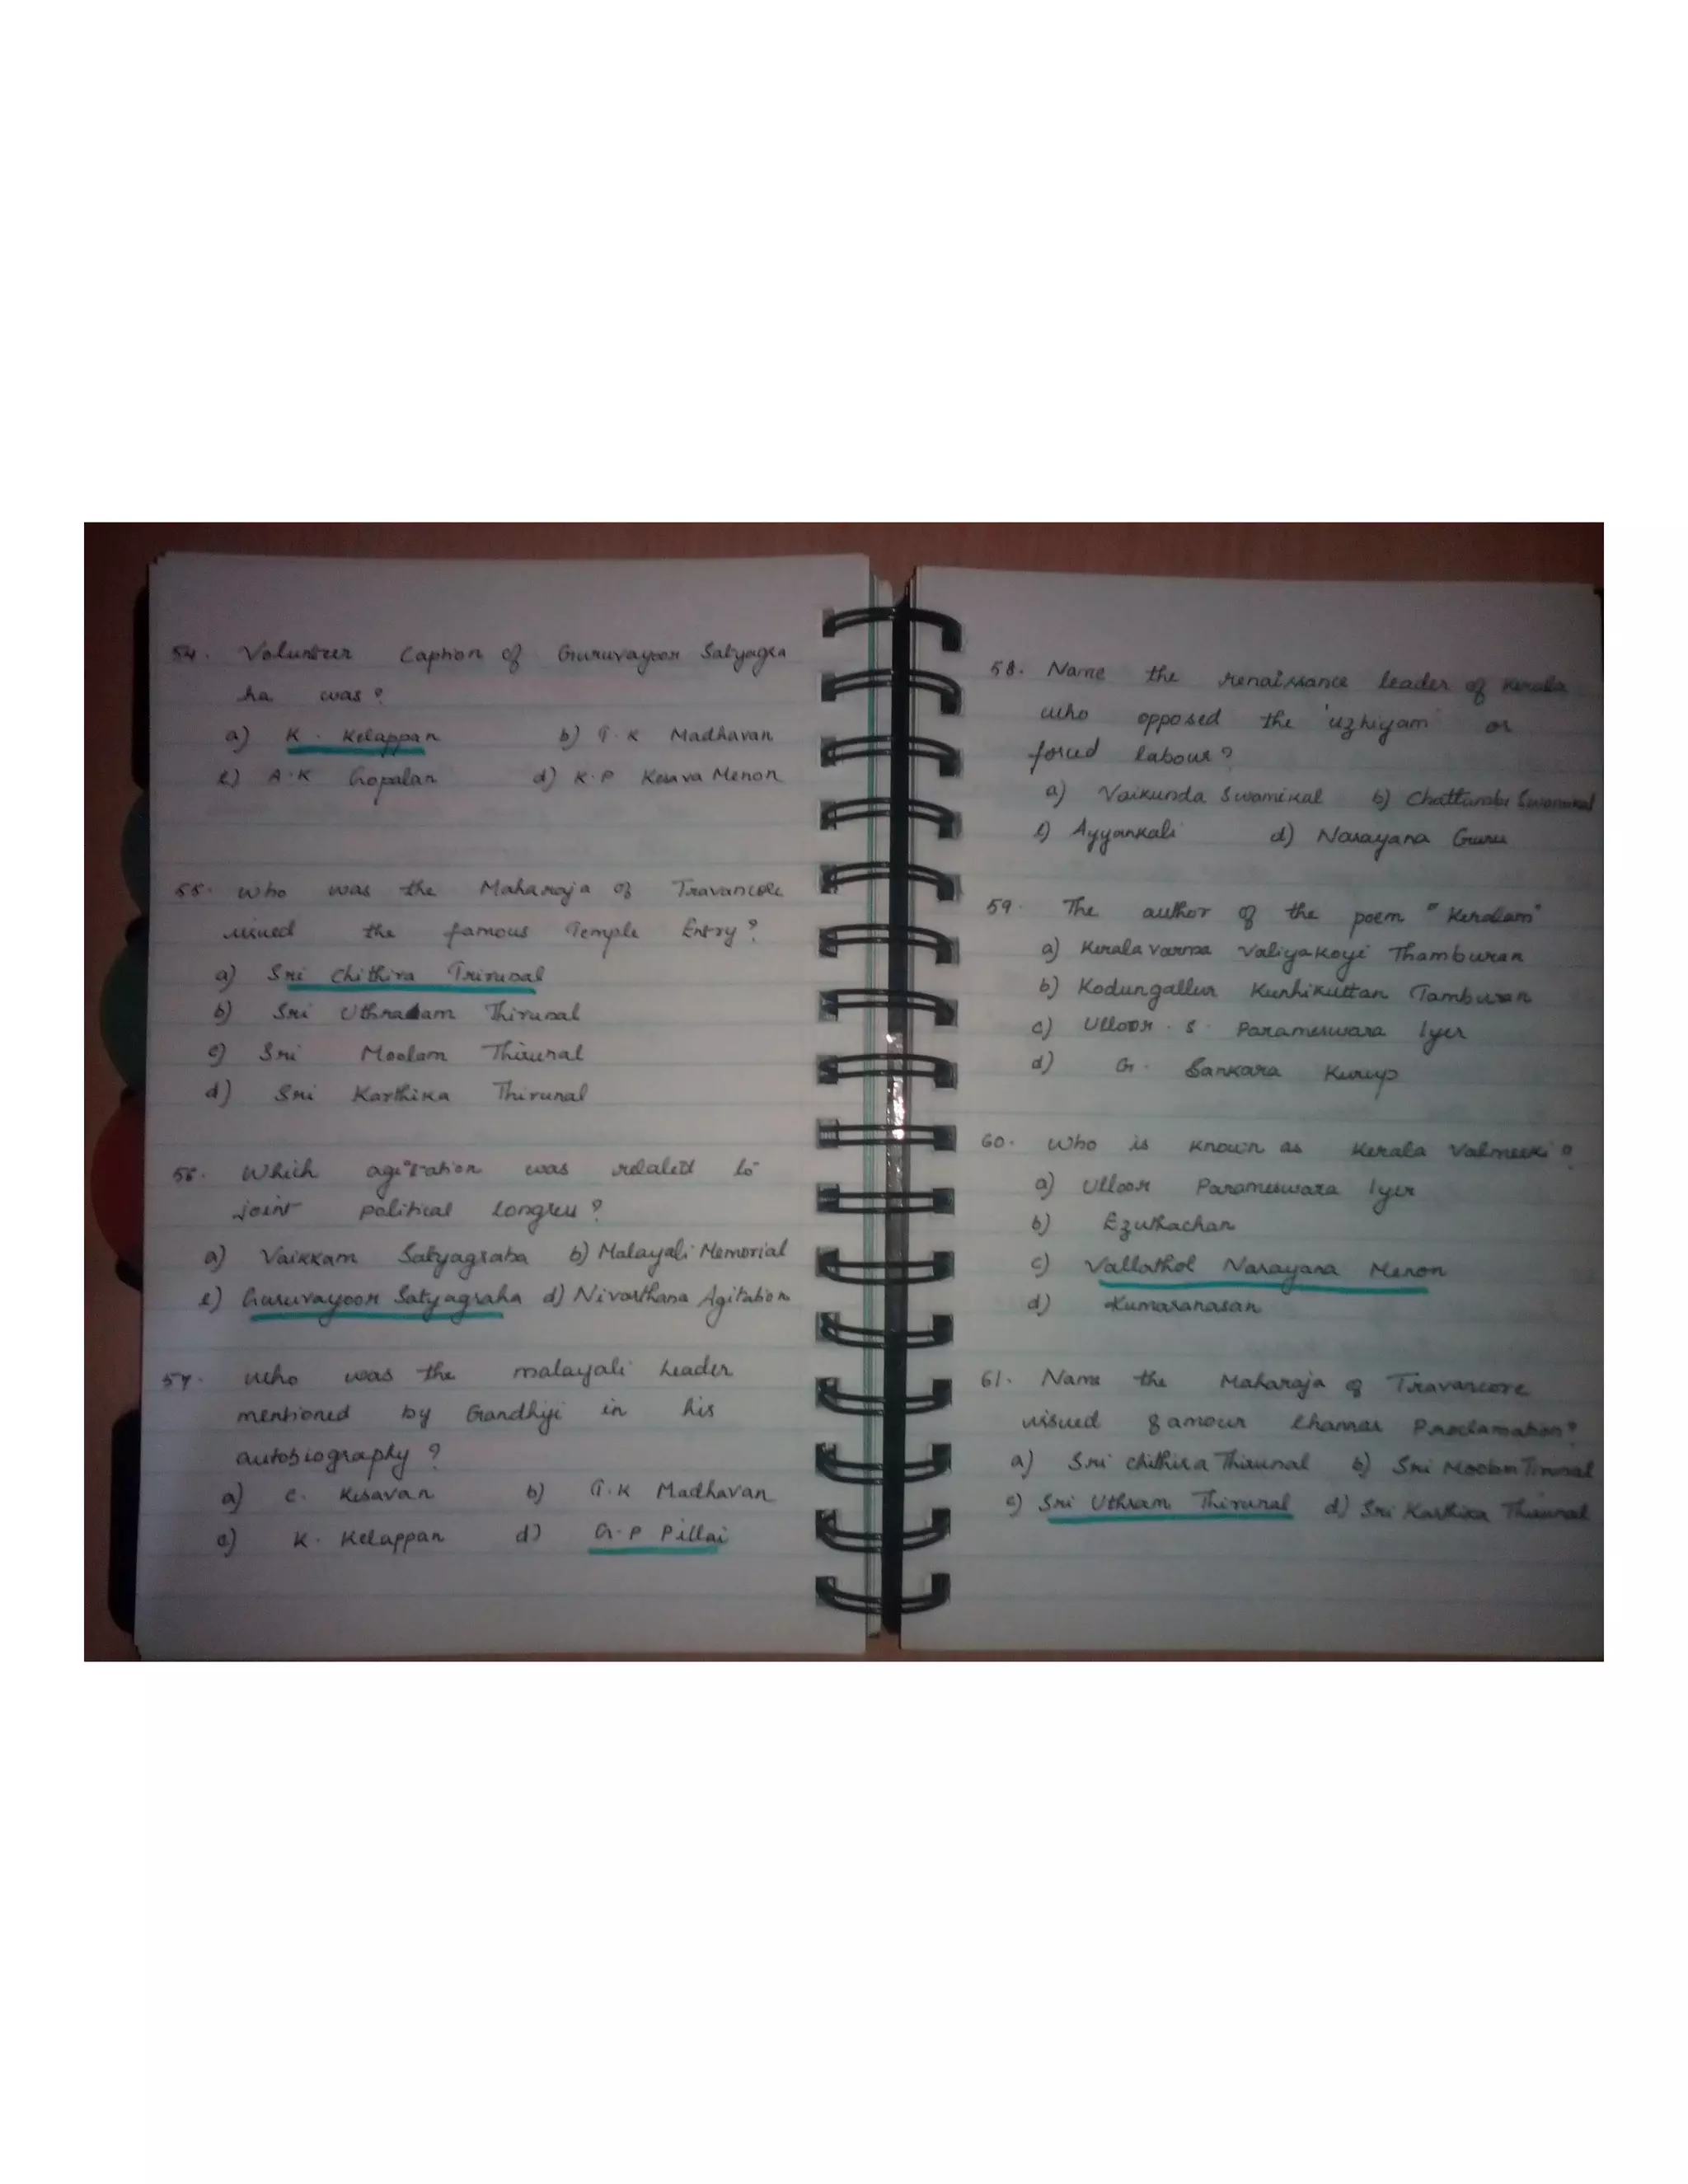 54. Volunteer Caption of Guruvayoor Satyagra
ha was?
a) K. Kelappan b) T.K Madhavan
c) A.K Gopalan d) K.P Kesava Menon
55. Who was the Maharaja of Travancore
issued the famous Temple Entry?
a) Sri Chithira Trirunal
b) Sri Uthradam Thirunal
c) Sri Moolam Thirunal
d) Sri Karthika Thirunal
56. Which agitation was related to
joint political congress?
a) Vaikkam Satyagraha b) Malayali Memorial
c) Guruvayoor Satyagraha d) Nivarthana Agitation
57. who was the malayali leader
mentioned by Gandhiji in his
autobiography?
a) C. Kesavan b) T.K Madhavan
c) K. Kelappan d) G.P Pillai
58. Name the renaissance leader of Kerala
who opposed the 'uzhiyam' or
forced labour?
a) Vaikunda Swamikal b) Chattambi Swamikal
c) Ayyankali d) Narayana Guru
59. The author of the poem "Keralam"
a) Kerala Varma Valiyakoyi Thamburan
b) Kodungallur Kunhikuttan Tamburan
c) Ulloor. S. Parameswara Iyer
d) G. Sankara Kurup
60. Who is known as Kerala Valmeeki?
a) Ulloor Parameswara Iyer
b) Ezuthachan
c) Vallathol Narayana Menon
d) Kumaranasan
61. Name the Maharaja of Travancore
issued famour Channar Proclamation?
a) Sri chithira Thirunal b) Sri Moolam Tirunal
c) Sri Uthram Thirunal d) Sri Karthika Thirunal